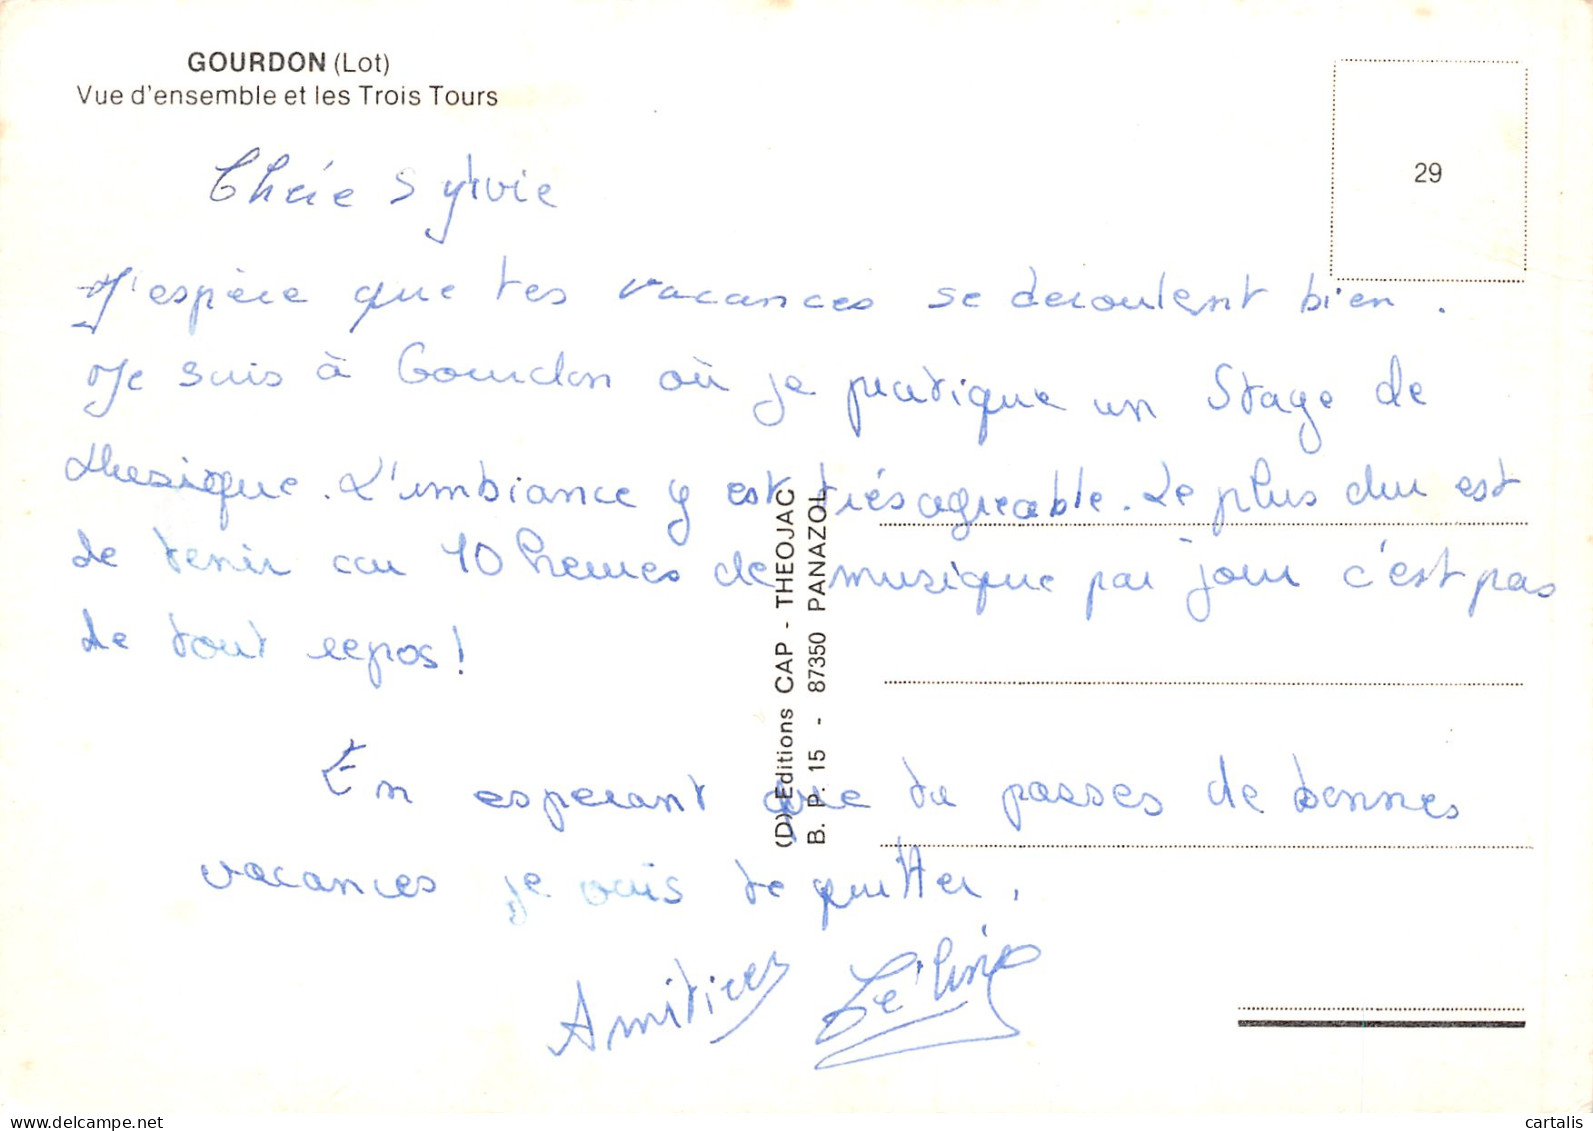 GOURDON (Lot)
Vue d'ensemble et les Trois Tours
29
Chérie Sylvie
J'espère que tes vacances se deroulent bien.
Je suis à Gourdon où je pratique un Stage de
Musique. L'ambiance y est très agreable. Le plus dur est
de tenir car 10 heures de musique par jour c'est pas
de tout repos!
En esperant que tu passes de bonnes
vacances je vais te quitter.
Amitiées
(D) Editions CAP - THEOJAC
B. P. 15 - 87350 PANAZOL
cartalis